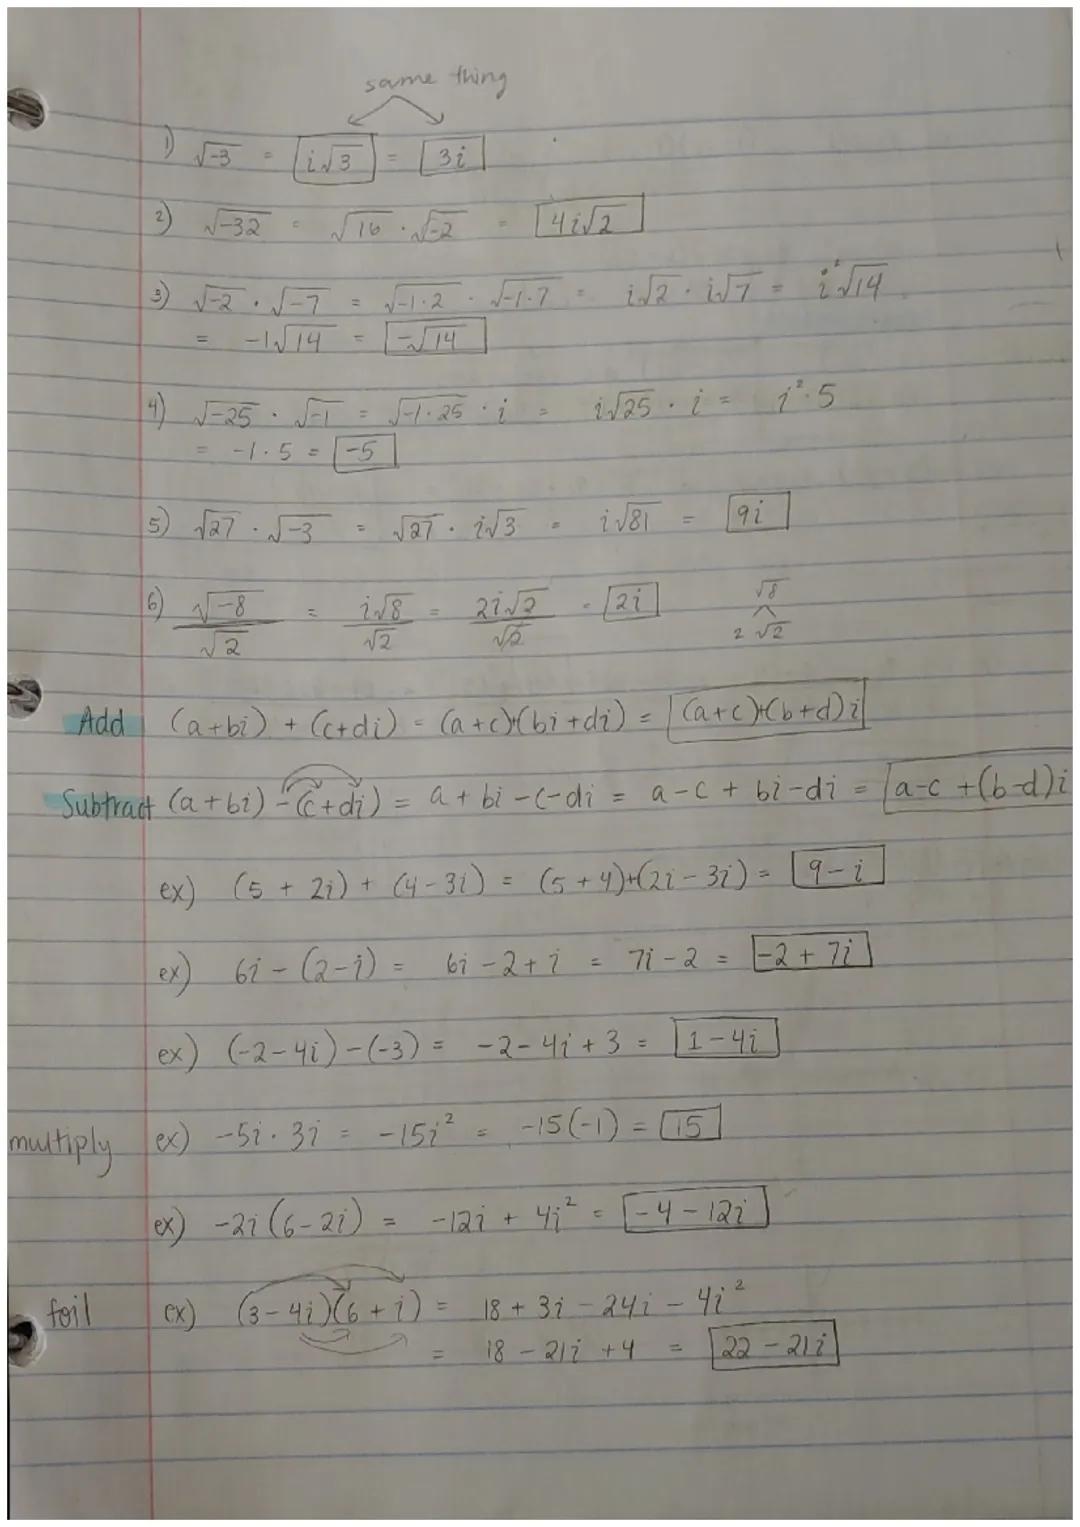 same thing
1) √-3 = i√3 = 3i
2) √-32 = √16 · √-2 = 4i√2
3) √-2 · √-7 = √-1·2 · √-1·7 = i√2 · i√7 = i²√14
= -1√14 = -√14
4) √-25 · √-1 = √-1·25 · i = i√25 · i = i²·5
= -1·5 = -5
5) √27 · √-3 = √27 · i√3 = i√81 = 9i
6) √-8/√2 = i√8/√2 = 2i√2/√2 = 2i √8
2 √2
Add (a+bi) + (c+di) = (a+c)+(bi+di) = (a+c)+(b+d)i
Subtract (a+bi) - (c+di) = a + bi -c-di = a-c + bi-di = a-c +(b-d)i
ex) (5 + 2i) + (4-3i) = (5+4)+(2i-3i) = 9-i
ex) 6i - (2-i) = 6i - 2 + i = 7i - 2 = -2 + 7i
ex) (-2-4i)-(-3) = -2-4i+3 = 1-4i
multiply ex) -5i · 3i = -15i² = -15(-1) = 15
ex) -2i(6-2i) = -12i + 4i² = -4-12i
foil ex) (3-4i)(6+i) = 18 + 3i - 24i - 4i²
= 18 - 21i + 4 = 22 - 21i